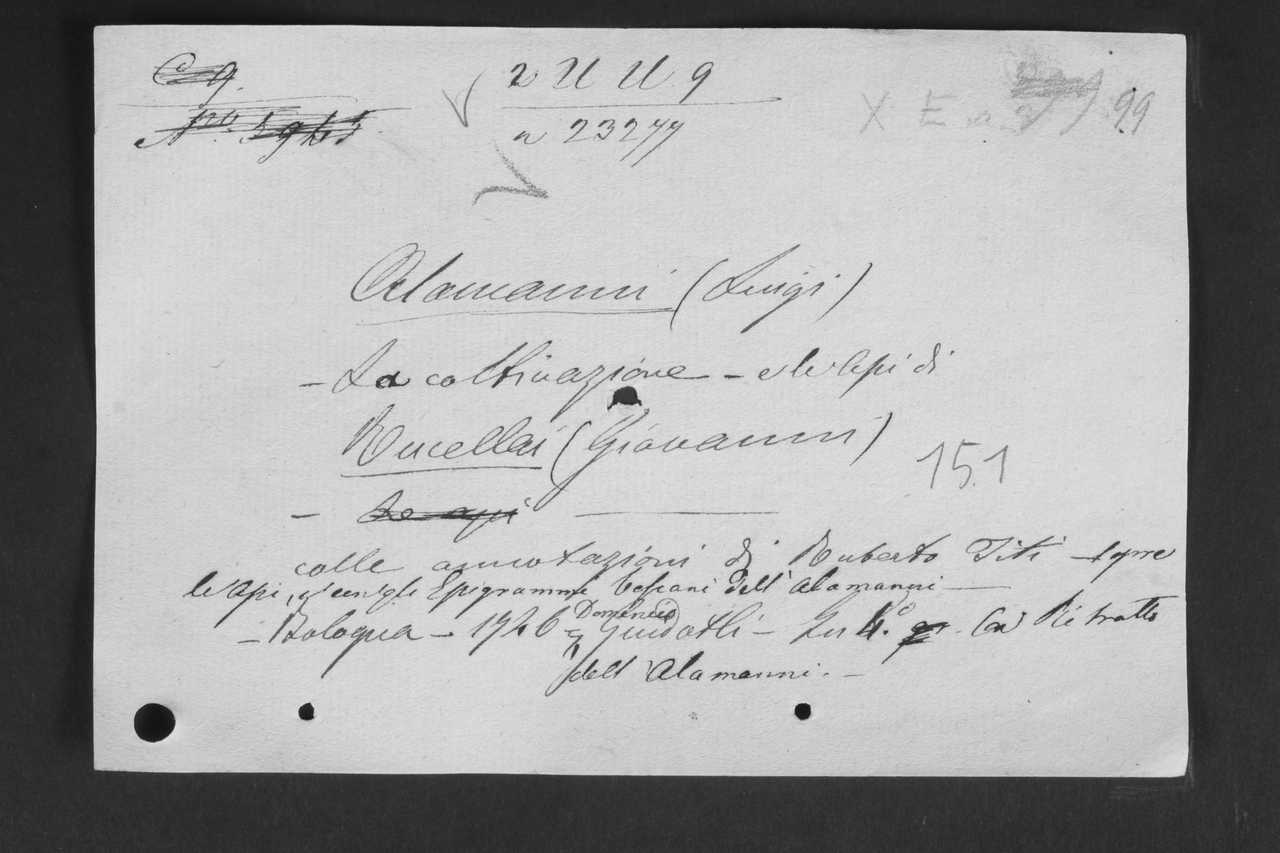 2 U U 9
n 23277
X E
99
Alamanni (Luigi)
- La coltivazione - e le Api di
Rucellai (Giovanni)
151
- Le api
colle annotazioni di Ruberto Titi - sopra
le Api, e con gli Epigrammi Toscani dell' Alamanni -
- Bologna - 1746 Domenico Guidotti - In 4.° Col Ritratto
dell' Alamanni. -